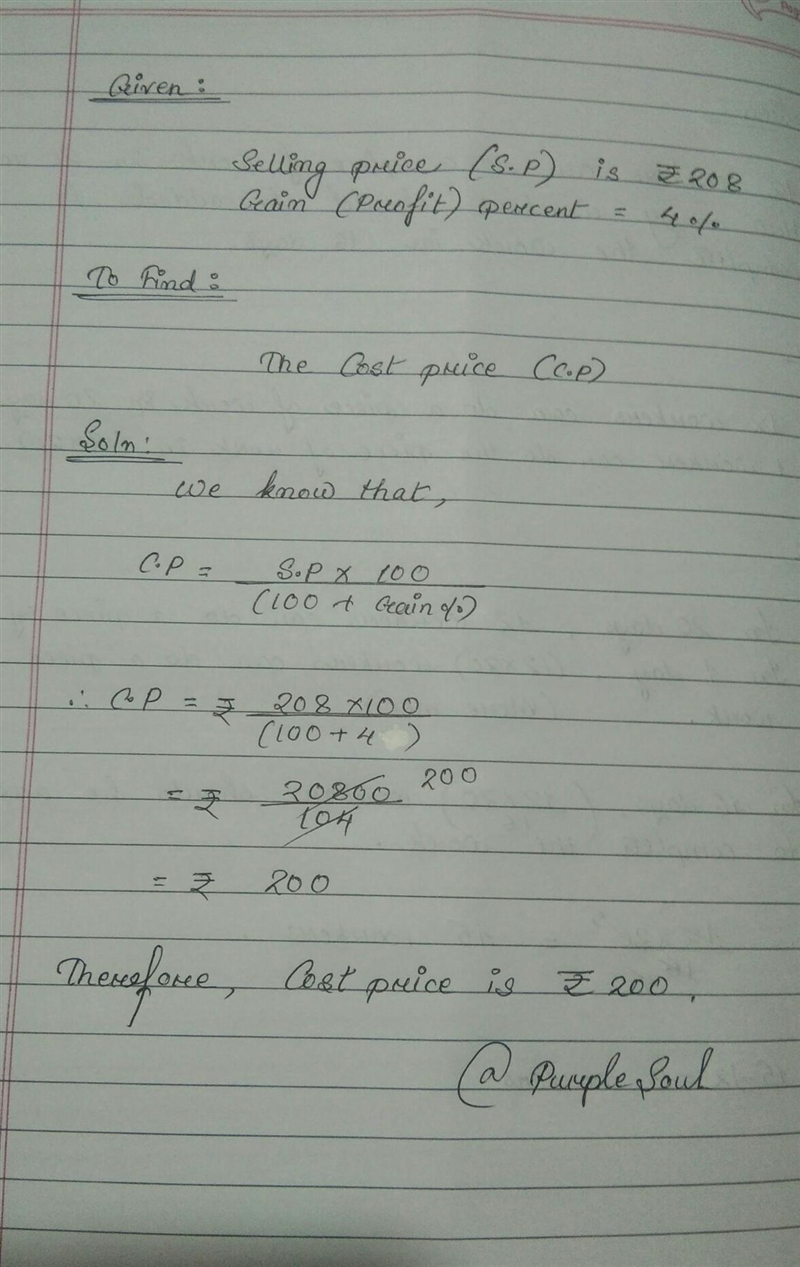 Given :
Selling price (S.P) is ₹ 208
Gain (Profit) percent = 4%
To Find :
The Cost price (C.P)
Soln :
We know that,
C.P = S.P x 100
(100 + Gain%)
∴ C.P = ₹ 208 x 100
(100 + 4 )
= ₹ 20800 200
104
= ₹ 200
Therefore, Cost price is ₹ 200.
@ Purple Soul